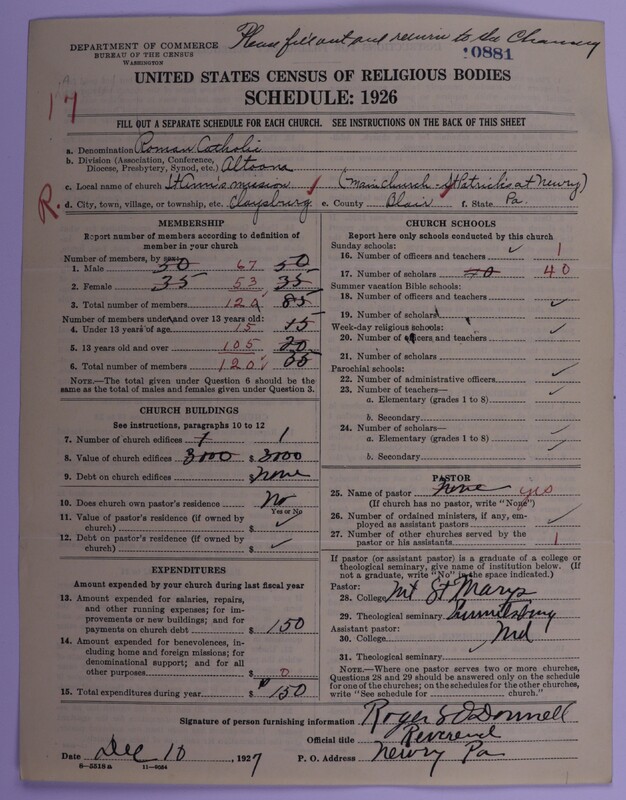 Please fill out and return to the Chancery
DEPARTMENT OF COMMERCE
BUREAU OF THE CENSUS
WASHINGTON
10881
UNITED STATES CENSUS OF RELIGIOUS BODIES
SCHEDULE: 1926
17
FILL OUT A SEPARATE SCHEDULE FOR EACH CHURCH. SEE INSTRUCTIONS ON THE BACK OF THIS SHEET
a. Denomination Roman Catholic
b. Division (Association, Conference,
Diocese, Presbytery, Synod, etc.) Altoona
c. Local name of church mission (main church - St Patricks at Newry)
R.
d. City, town, village, or township, etc. Claysburg e. County Blair f. State Pa.
MEMBERSHIP
Report number of members according to definition of
member in your church
Number of members, by sex:
1. Male 50 67 50
2. Female 35 53 35
3. Total number of members 120 85
Number of members under and over 13 years old:
4. Under 13 years of age 15 15
5. 13 years old and over 105 20
6. Total number of members 120 35
NOTE.—The total given under Question 6 should be the
same as the total of males and females given under Question 3.
CHURCH BUILDINGS
See instructions, paragraphs 10 to 12
7. Number of church edifices 1 1
8. Value of church edifices 3000 $ 3000
9. Debt on church edifices $ none
10. Does church own pastor's residence? No
Yes or No
11. Value of pastor's residence (if owned by
church) $ ✓
12. Debt on pastor's residence (if owned by
church) $ ✓
EXPENDITURES
Amount expended by your church during last fiscal year
13. Amount expended for salaries, repairs,
and other running expenses; for im-
provements or new buildings; and for
payments on church debt $ 150
14. Amount expended for benevolences, in-
cluding home and foreign missions; for
denominational support; and for all
other purposes $ 0
15. Total expenditures during year $ 150
CHURCH SCHOOLS
Report here only schools conducted by this church
Sunday schools:
16. Number of officers and teachers ✓ 1
17. Number of scholars 40
Summer vacation Bible schools:
18. Number of officers and teachers ✓
19. Number of scholars
Week-day religious schools: ✓
20. Number of officers and teachers
21. Number of scholars
Parochial schools:
22. Number of administrative officers ✓
23. Number of teachers—
a. Elementary (grades 1 to 8) ✓
b. Secondary
24. Number of scholars— ✓
a. Elementary (grades 1 to 8) ✓
b. Secondary
PASTOR
25. Name of pastor none yes
(If church has no pastor, write "None")
26. Number of ordained ministers, if any, em-
ployed as assistant pastors ✓
27. Number of other churches served by the
pastor or his assistants 1
If pastor (or assistant pastor) is a graduate of a college or
theological seminary, give name of institution below. (If
not a graduate, write "No" in the space indicated.)
Pastor:
28. College Mt St Marys
29. Theological seminary Emmitsburg
Assistant pastor:
30. College Md
31. Theological seminary
NOTE.—Where one pastor serves two or more churches,
Questions 28 and 29 should be answered only on the schedule
for one of the churches; on the schedules for the other churches,
write "See schedule for church."
Signature of person furnishing information Roger S O'Donnell
Official title Reverend
Date Dec 10, 1927 P. O. Address Newry Pa
8—5518a 11—9054